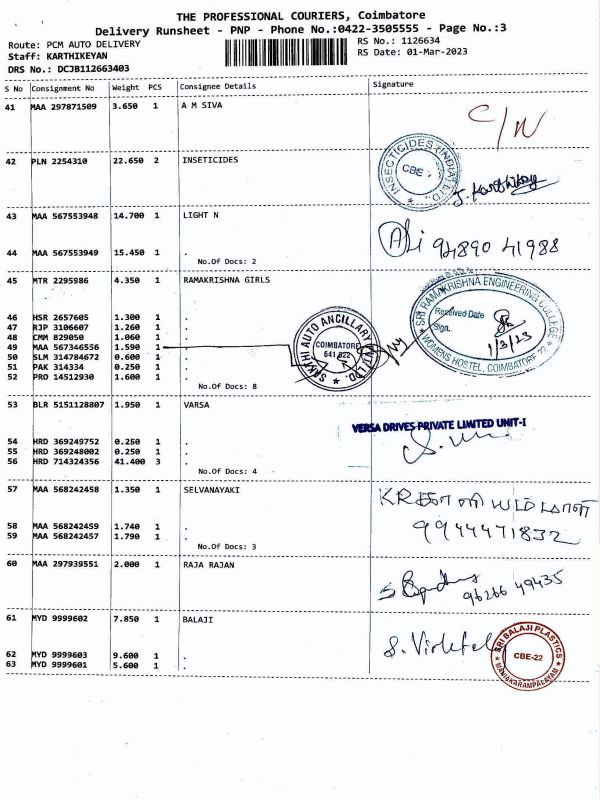 THE PROFESSIONAL COURIERS, Coimbatore
Delivery Runsheet - PNP - Phone No.:0422-3505555 - Page No.:3
Route: PCM AUTO DELIVERY
RS No.: 1126634
Staff: KARTHIKEYAN
RS Date: 01-Mar-2023
DRS No.: DCJB112663403
S No Consignment No Weight PCS Consignee Details Signature
41 MAA 297871509 3.650 1 A M SIVA
C/N
42 PLN 2254310 22.650 2 INSETICIDES
INSECTICIDES (INDIA) LTD.
CBE
J. Karthikay
43 MAA 567553948 14.700 1 LIGHT N
Ali 94890 41988
44 MAA 567553949 15.450 1 .
No.Of Docs: 2
45 MTR 2295986 4.350 1 RAMAKRISHNA GIRLS
SRI RAMAKRISHNA ENGINEERING COLLEGE
Received Date
Sign.
1/3/23
WOMENS HOSTEL, COIMBATORE 22
46 HSR 2657605 1.300 1 .
47 RJP 3106607 1.260 1 .
48 CMM 829050 1.060 1 .
49 MAA 567346556 1.590 1
SAKTHI AUTO ANCILLARY PVT LTD.
COIMBATORE
641 022
50 SLM 314784672 0.600 1 .
51 PAK 314334 0.250 1 .
52 PRO 14512930 1.600 1 .
No.Of Docs: 8
53 BLR 5151128807 1.950 1 VARSA
VERSA DRIVES PRIVATE LIMITED UNIT-I
54 HRD 369249752 0.250 1 .
55 HRD 369248002 0.250 1 .
56 HRD 714324356 41.400 3 .
No.Of Docs: 4
57 MAA 568242458 1.350 1 SELVANAYAKI
9944471832
58 MAA 568242459 1.740 1 .
59 MAA 568242457 1.790 1 .
No.Of Docs: 3
60 MAA 297939551 2.000 1 RAJA RAJAN
96266 49435
61 MYD 9999602 7.850 1 BALAJI
SRI BALAJI PLASTICS
CBE-22
MANIAKARAMPALAYAM
62 MYD 9999603 9.600 1 .
63 MYD 9999601 5.600 1 .